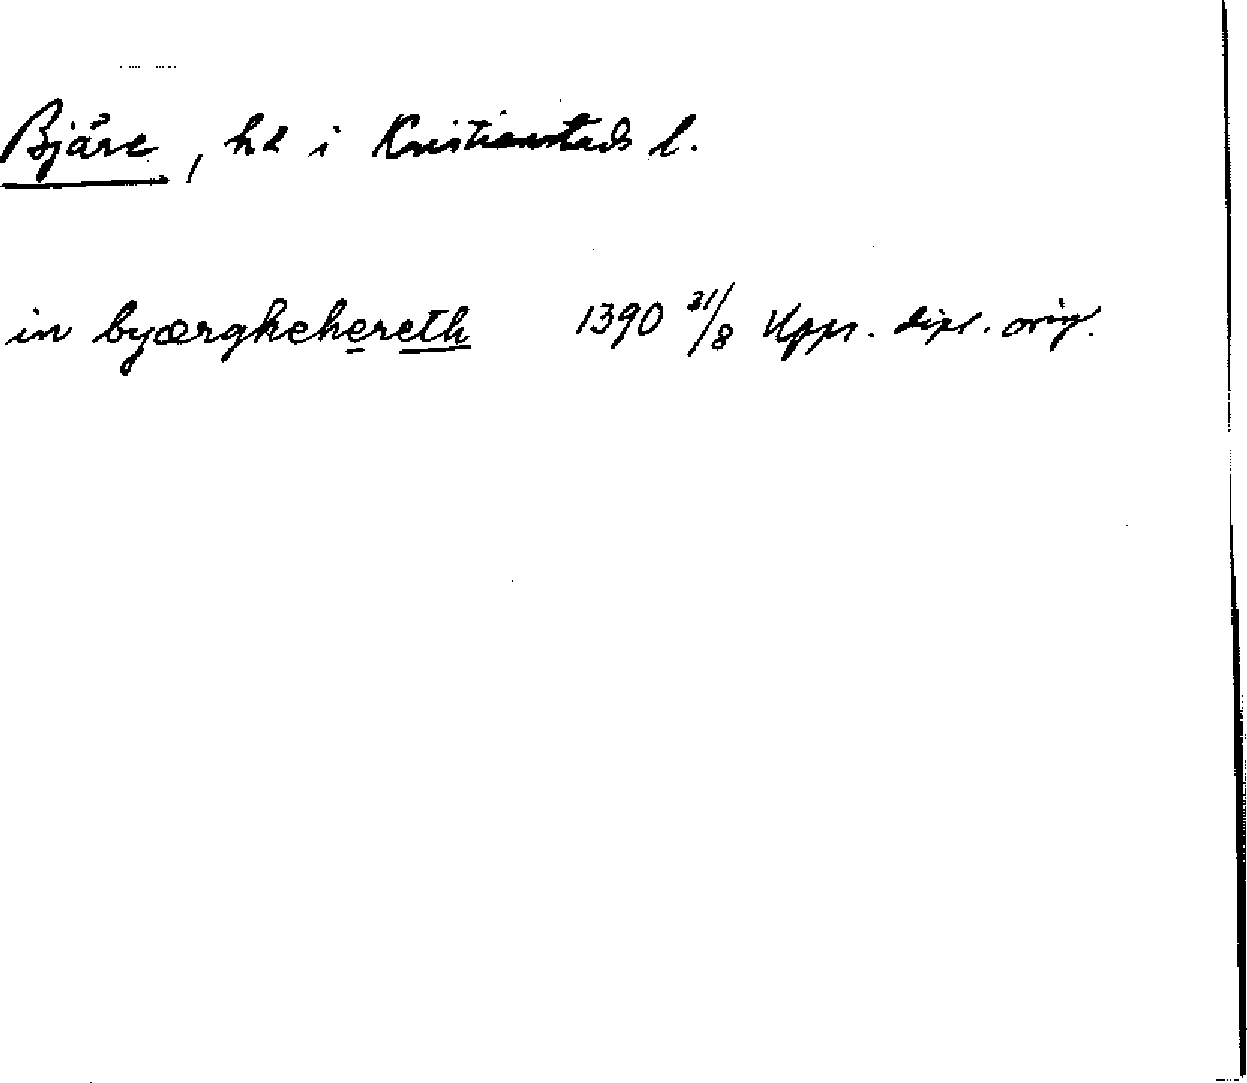 Bjäre, hd i Kristianstads l.
in byærghehereth 1390 21/8 Upps. dipl. orig.